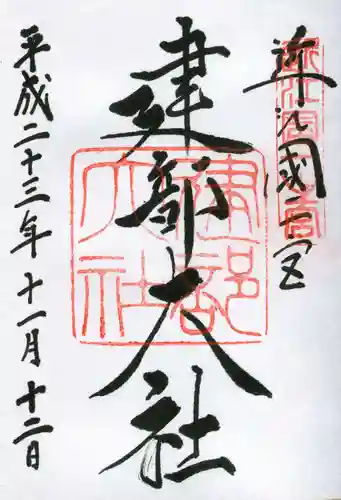 近江國一宮
建部大社
平成二十三年十一月十二日
近江國一之宮
建部大社